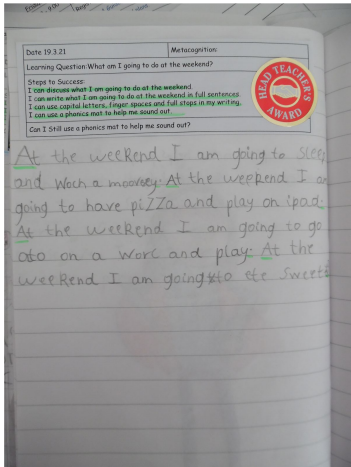 Date 19.3.21
Metacognition:
Learning Question: What am I going to do at the weekend?
Steps to Success:
I can discuss what I am going to do at the weekend.
I can write what I am going to do at the weekend in full sentences.
I can use capital letters, finger spaces and full stops in my writing.
I can use a phonics mat to help me sound out.
Can I Still use a phonics mat to help me sound out?
HEAD TEACHER'S
AWARD
At the weekend I am going to sleep
and woch a moovsey. At the weekend I am
going to have pizza and play on ipad.
At the weekend I am going to go
on a worc and play. At the
weekend I am going to ete sweets